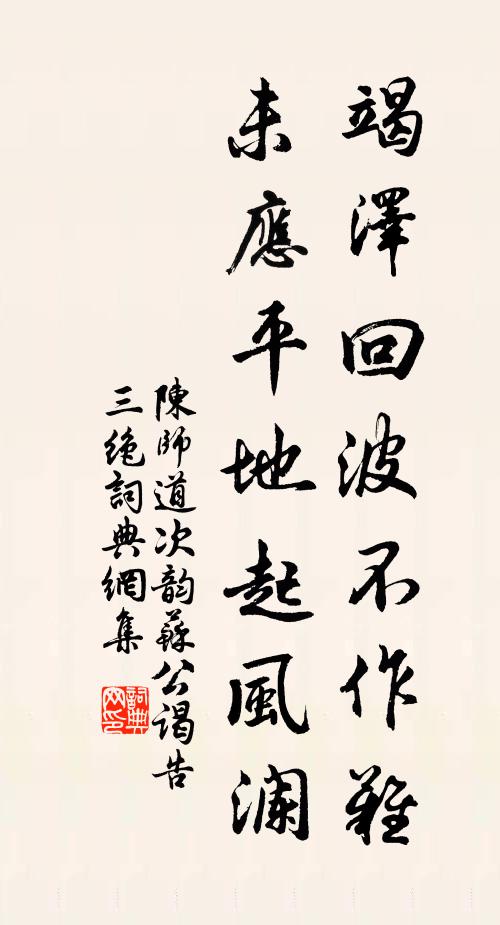 竭澤回波不作難
未應平地起風瀾
陳師道次韵蘇公謁告
三绝詞典網集
詞典网印